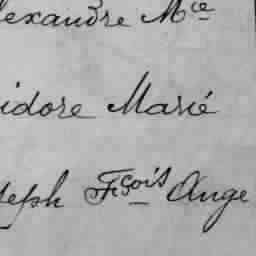 lexandre Mce
idore Marié
seph Fçois Ange